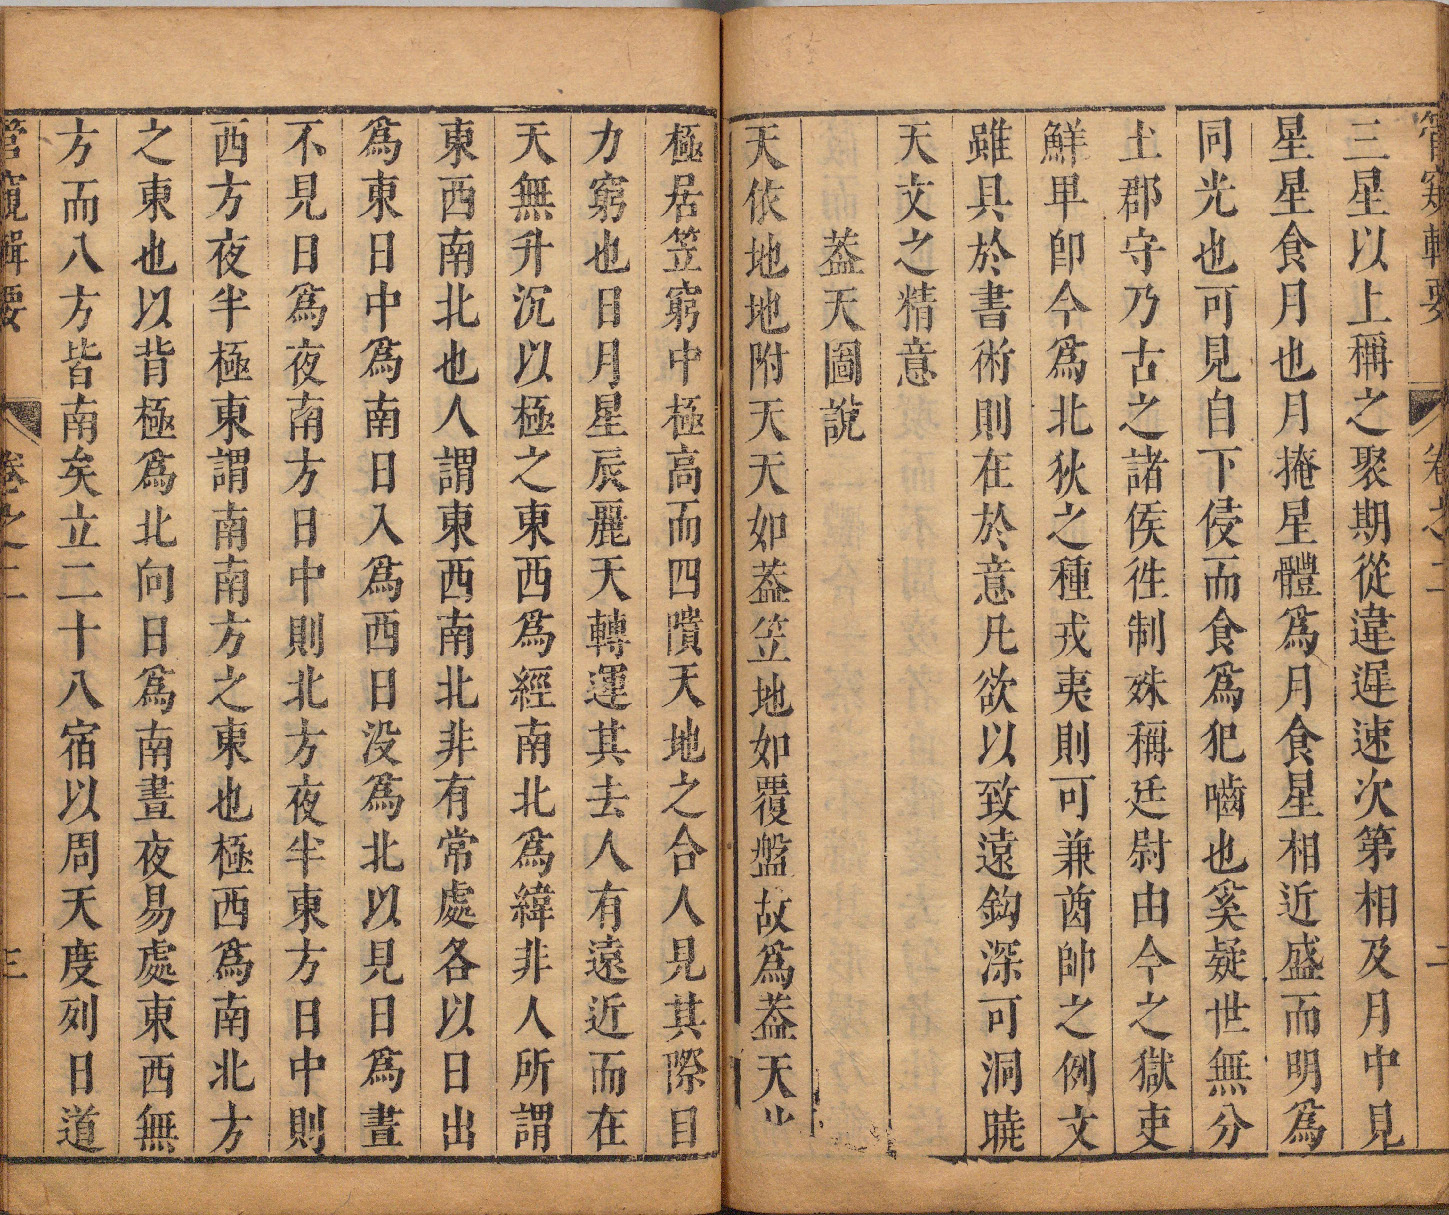 管窺輯要 卷之二 二
三星以上稱之聚期從違遲速次第相及月中見
星星食月也月掩星體爲月食星相近盛而明爲
同光也可見自下侵而食爲犯嚙也奚疑世無分
土郡守乃古之諸侯徃制殊稱廷尉由今之獄吏
鮮卑卽今爲北狄之種戎夷則可兼酋帥之例文
雖具於書術則在於意凡欲以致遠鈎深可洞曉
天文之精意
蓋天圖說
天依地地附天天如蓋笠地如覆盤故爲蓋天
極居笠窮中極高而四隤天地之合人見其際目
力窮也日月星辰麗天轉運其去人有遠近而在
天無升沉以極之東西爲經南北爲緯非人所謂
東西南北也人謂東西南北非有常處各以日出
爲東日中爲南日入爲西日没爲北以見日爲晝
不見日爲夜南方日中則北方夜半東方日中則
西方夜半極東謂南南方之東也極西爲南北方
之東也以背極爲北向日爲南晝夜易處東西無
方而八方皆南矣立二十八宿以周天度列日道
管窺輯要 卷之二 三